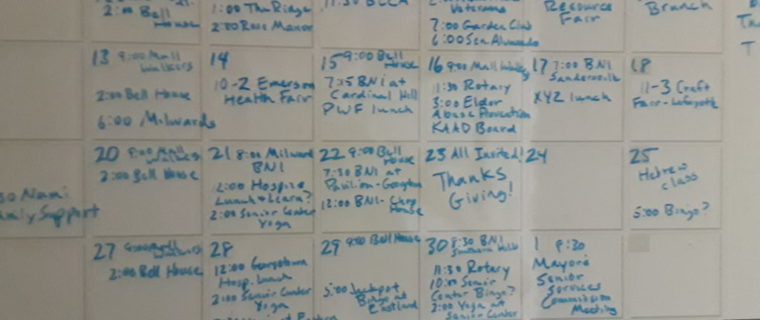 2:00 Bell
House
1:00 The Ridge
2:00 Rose Manor
Veterans
7:00 Garden Club
6:00
Resource
Fair
Branch
T
13 9:00 Mall
Walkers
2:00 Bell House
6:00 Milwards
14
10-2 Emerson
Health Fair
15 9:00 Bell
House
7:15 BNI at
Cardinal Hill
PWF lunch
16 9:00 Mall
11:30 Rotary
3:00 Elder
Abuse Prevention
KAAD Board
17 7:00 BNI
XYZ lunch
18
11-3 Craft
Fair-Lafayette
20
2:00 Bell House
21 8:00 Milward
BNI
Hospice
Lunch & Learn?
2:00 Senior Center
Yoga
22 9:00 Bell
House
7:30 BNI at
Pavilion-Georgetown
12:00 BNI-
House
23 All Invited!
Thanks
Giving!
24
25
Hebrew
class
5:00 Bingo?
Support
27
2:00 Bell House
28
12:00 Georgetown
Hosp. Lunch
2:00 Senior Center
Yoga
29 9:00 Bell House
5:00 Jackpot
Bingo at
Eastland
30 8:30 BNI
11:30 Rotary
10:00 Senior
Center Bingo?
2:00 Yoga at
Senior Center
1
Mayors
Senior
Services
Commission
Meeting